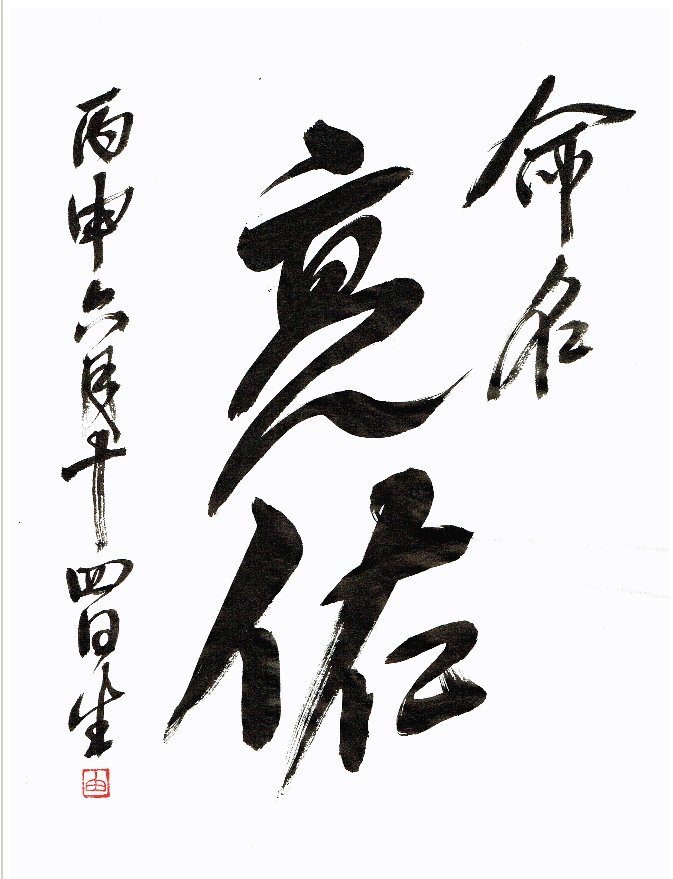 命名
亮佑
丙申六月十四日生
由